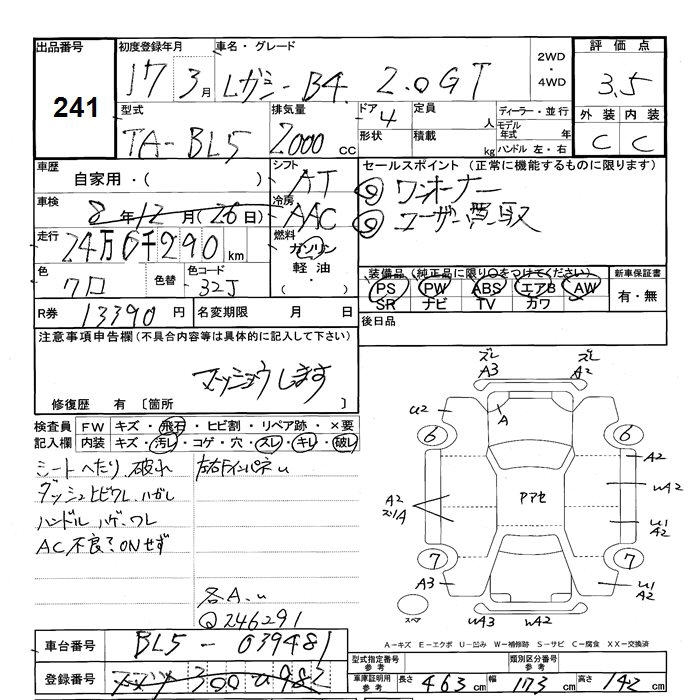 出品番号 241
初度登録年月 17 3月
車名・グレード レガシーB4 2.0GT
2WD・4WD
評価点 3.5
型式 TA-BL5
排気量 2000 cc
ドア 4
形状
定員 人
積載 kg
ディーラー・並行
モデル年式 年
ハンドル 左・右
外装 内装
C C
車歴 自家用・( )
シフト AT
セールスポイント (正常に機能するものに限ります)
① ワンオーナー
② ユーザー買取
車検 8年12月(26日)
冷房 AAC
走行 24万6千290 km
燃料 ガソリン
軽油・
( )
色 クロ
色替
色コード 32J
装備品 (純正品に限り○をつけてください)
PS PW ABS エアB AW
SR ナビ TV カワ
新車保証書 有・無
R券 13390 円
名変期限 月 日
後日品
注意事項申告欄 (不具合内容等は具体的に記入して下さい)
マッショウします
修復歴 有 〔箇所 〕
検査員記入欄
FW キズ・飛石・ヒビ割・リペア跡・×要
内装 キズ・汚レ・コゲ・穴・スレ・キレ・破レ
シートへたり、破れ
左右インパネu
ダッシュヒビワレ、ハガレ
ハンドルハゲ、ワレ
AC不良?ONせず
各A.u
Q246291
ズレ ズレ
A3 A2
u2 A
6 6
A2
WA2
A2
ズリA
アアセ
u1
A2
7 7
A3
u1
A2
スペア
WA3 WA2
A-キズ E-エクボ U-凹み W-補修跡 S-サビ C-腐食 XX-交換済
車台番号 BL5-039481
型式指定番号 参考
類別区分番号 参考
登録番号 300
車庫証明用 参考 長さ 463 cm 幅 173 cm 高さ 142 cm